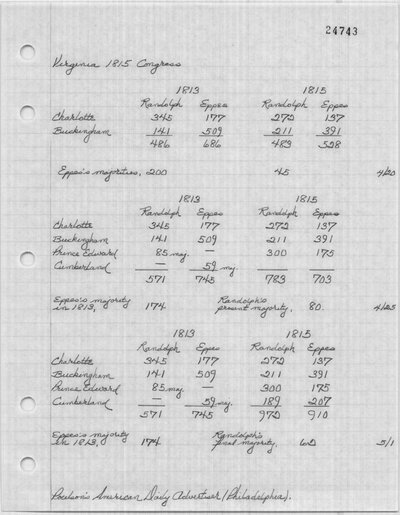 24743
Virginia 1815 Congress
1813 1815
Randolph Eppes Randolph Eppes
Charlotte 345 177 272 137
Buckingham 141 509 211 391
486 686 483 528
Eppes's majorities, 200 45 4/20
1813 1815
Randolph Eppes Randolph Eppes
Charlotte 345 177 272 137
Buckingham 141 509 211 391
Prince Edward 85 maj. — 300 175
Cumberland — 59 maj. — —
571 745 783 703
Eppes's majority in 1813, 174 Randolph's present majority, 80. 4/25
1813 1815
Randolph Eppes Randolph Eppes
Charlotte 345 177 272 137
Buckingham 141 509 211 391
Prince Edward 85 maj. — 300 175
Cumberland — 59 maj. 189 207
571 745 972 910
Eppes's majority in 1813, 174 Randolph's final majority, 62 5/1
Poulson's American Daily Advertiser (Philadelphia).